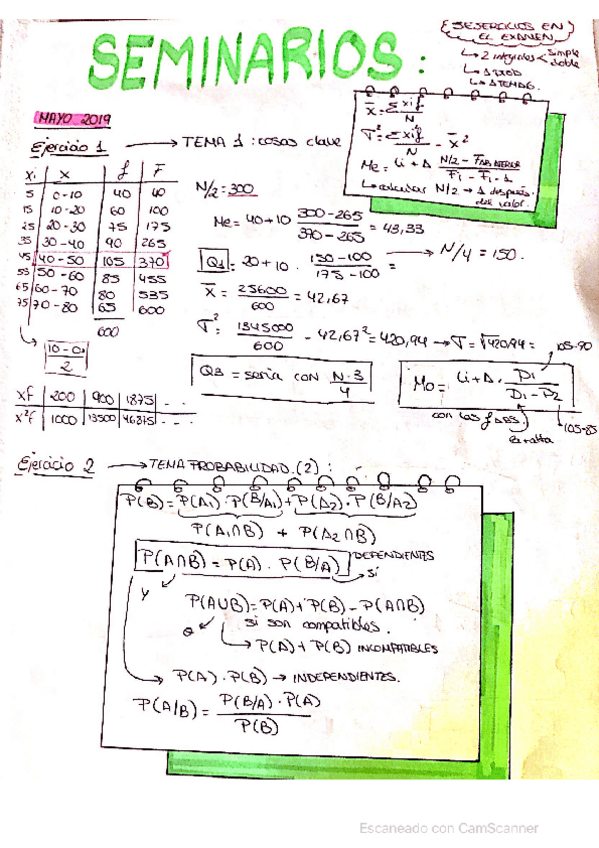 5 EJERCICIOS EN
EL EXAMEN
→ 2 integrales < simple
doble
→ 1 PROB
SEMINARIOS:
MAYO 2019
Ejercicio 1 → TEMA 1: cosas clave
x̄ = Σxif / N
σ² = Σxi²f / N - x̄²
Me = Li + A N/2 - F ANTERIOR / Fi - Fi-1
→ calcular N/2 → 1 después
del valor.
xi | x | f | F
5 | 0-10 | 40 | 40
15 | 10-20 | 60 | 100
25 | 20-30 | 75 | 175
35 | 30-40 | 90 | 265
45 | 40-50 | 105 | 370
55 | 50-60 | 85 | 455
65 | 60-70 | 80 | 535
75 | 70-80 | 65 | 600
600
10-0 / 2
xf | 200 | 900 | 1875 | ...
x²f | 1000 | 13500 | 46875 | ...
N/2 = 300
Me = 40+10 300-265 / 370-265 = 43,33
Q1 = 20+10 · 150-100 / 175-100 = → N/4 = 150.
x̄ = 25600 / 600 = 42,67
σ² = 1345000 / 600 - 42,67² = 420,94 → σ = √420,94 =
Q3 = seria con N·3 / 4
105-90
Mo = Li + A · D1 / D1 - D2
con las f ABS.
105-85
+ alta
Ejercicio 2 → TEMA PROBABILIDAD. (2):
P(B) = P(A1) · P(B/A1) + P(A2) · P(B/A2)
P(A1∩B) + P(A2∩B)
P(A∩B) = P(A) · P(B/A) DEPENDIENTES
si
Y
P(A∪B) = P(A) + P(B) - P(A∩B)
O
si son compatibles.
→ P(A) + P(B) INCOMPATIBLES
→ P(A) · P(B) → INDEPENDIENTES.
P(A/B) = P(B/A) · P(A) / P(B)
Escaneado con CamScanner